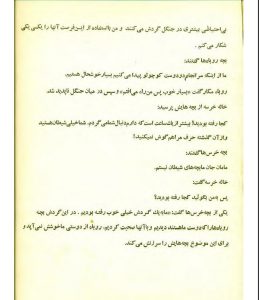 بی‌احتیاطی بیشتری در جنگل گردش می‌کنند و من بااستفاده از این‌فرصت آنها را یکی‌یکی
شکار می‌کنم .
بچه روباه‌ها گفتند:
ما از اینکه سرانجام دو دوست کوچولو پیدا می‌کنیم بسیار خوشحال هستیم.
روباه مکار گفت «بسیار خوب پس من راه می‌افتم» و سپس در میان جنگل ناپدید شد.
خانه خرسه از بچه هایش پرسید:
کجا رفته بودید؟ بیشتر از یک‌ساعت است که دارم دنبال شما می‌گردم. شما خیلی شیطان‌هستید
و از آن گذشته حرف مرا هم گوش نمیکنید؟
بچه خرس‌ها گفتند:
مامان جان ما بچه‌های شیطان نیستم.
خانه خرسه گفت:
پس بمن بگوئید کجا رفته بودید؟
یکی از بچه‌خرس‌ها گفت: «ما به یک گردش خیلی خوب رفته بودیم . در این گردش بچه
روباه‌ها را که دوست ما هستند دیدیم و با آنها صحبت کردیم. روباه از دوستی ما خوشش نمی‌آید و
برای این موضوع بچه‌هایش را سرزنش می‌کند.